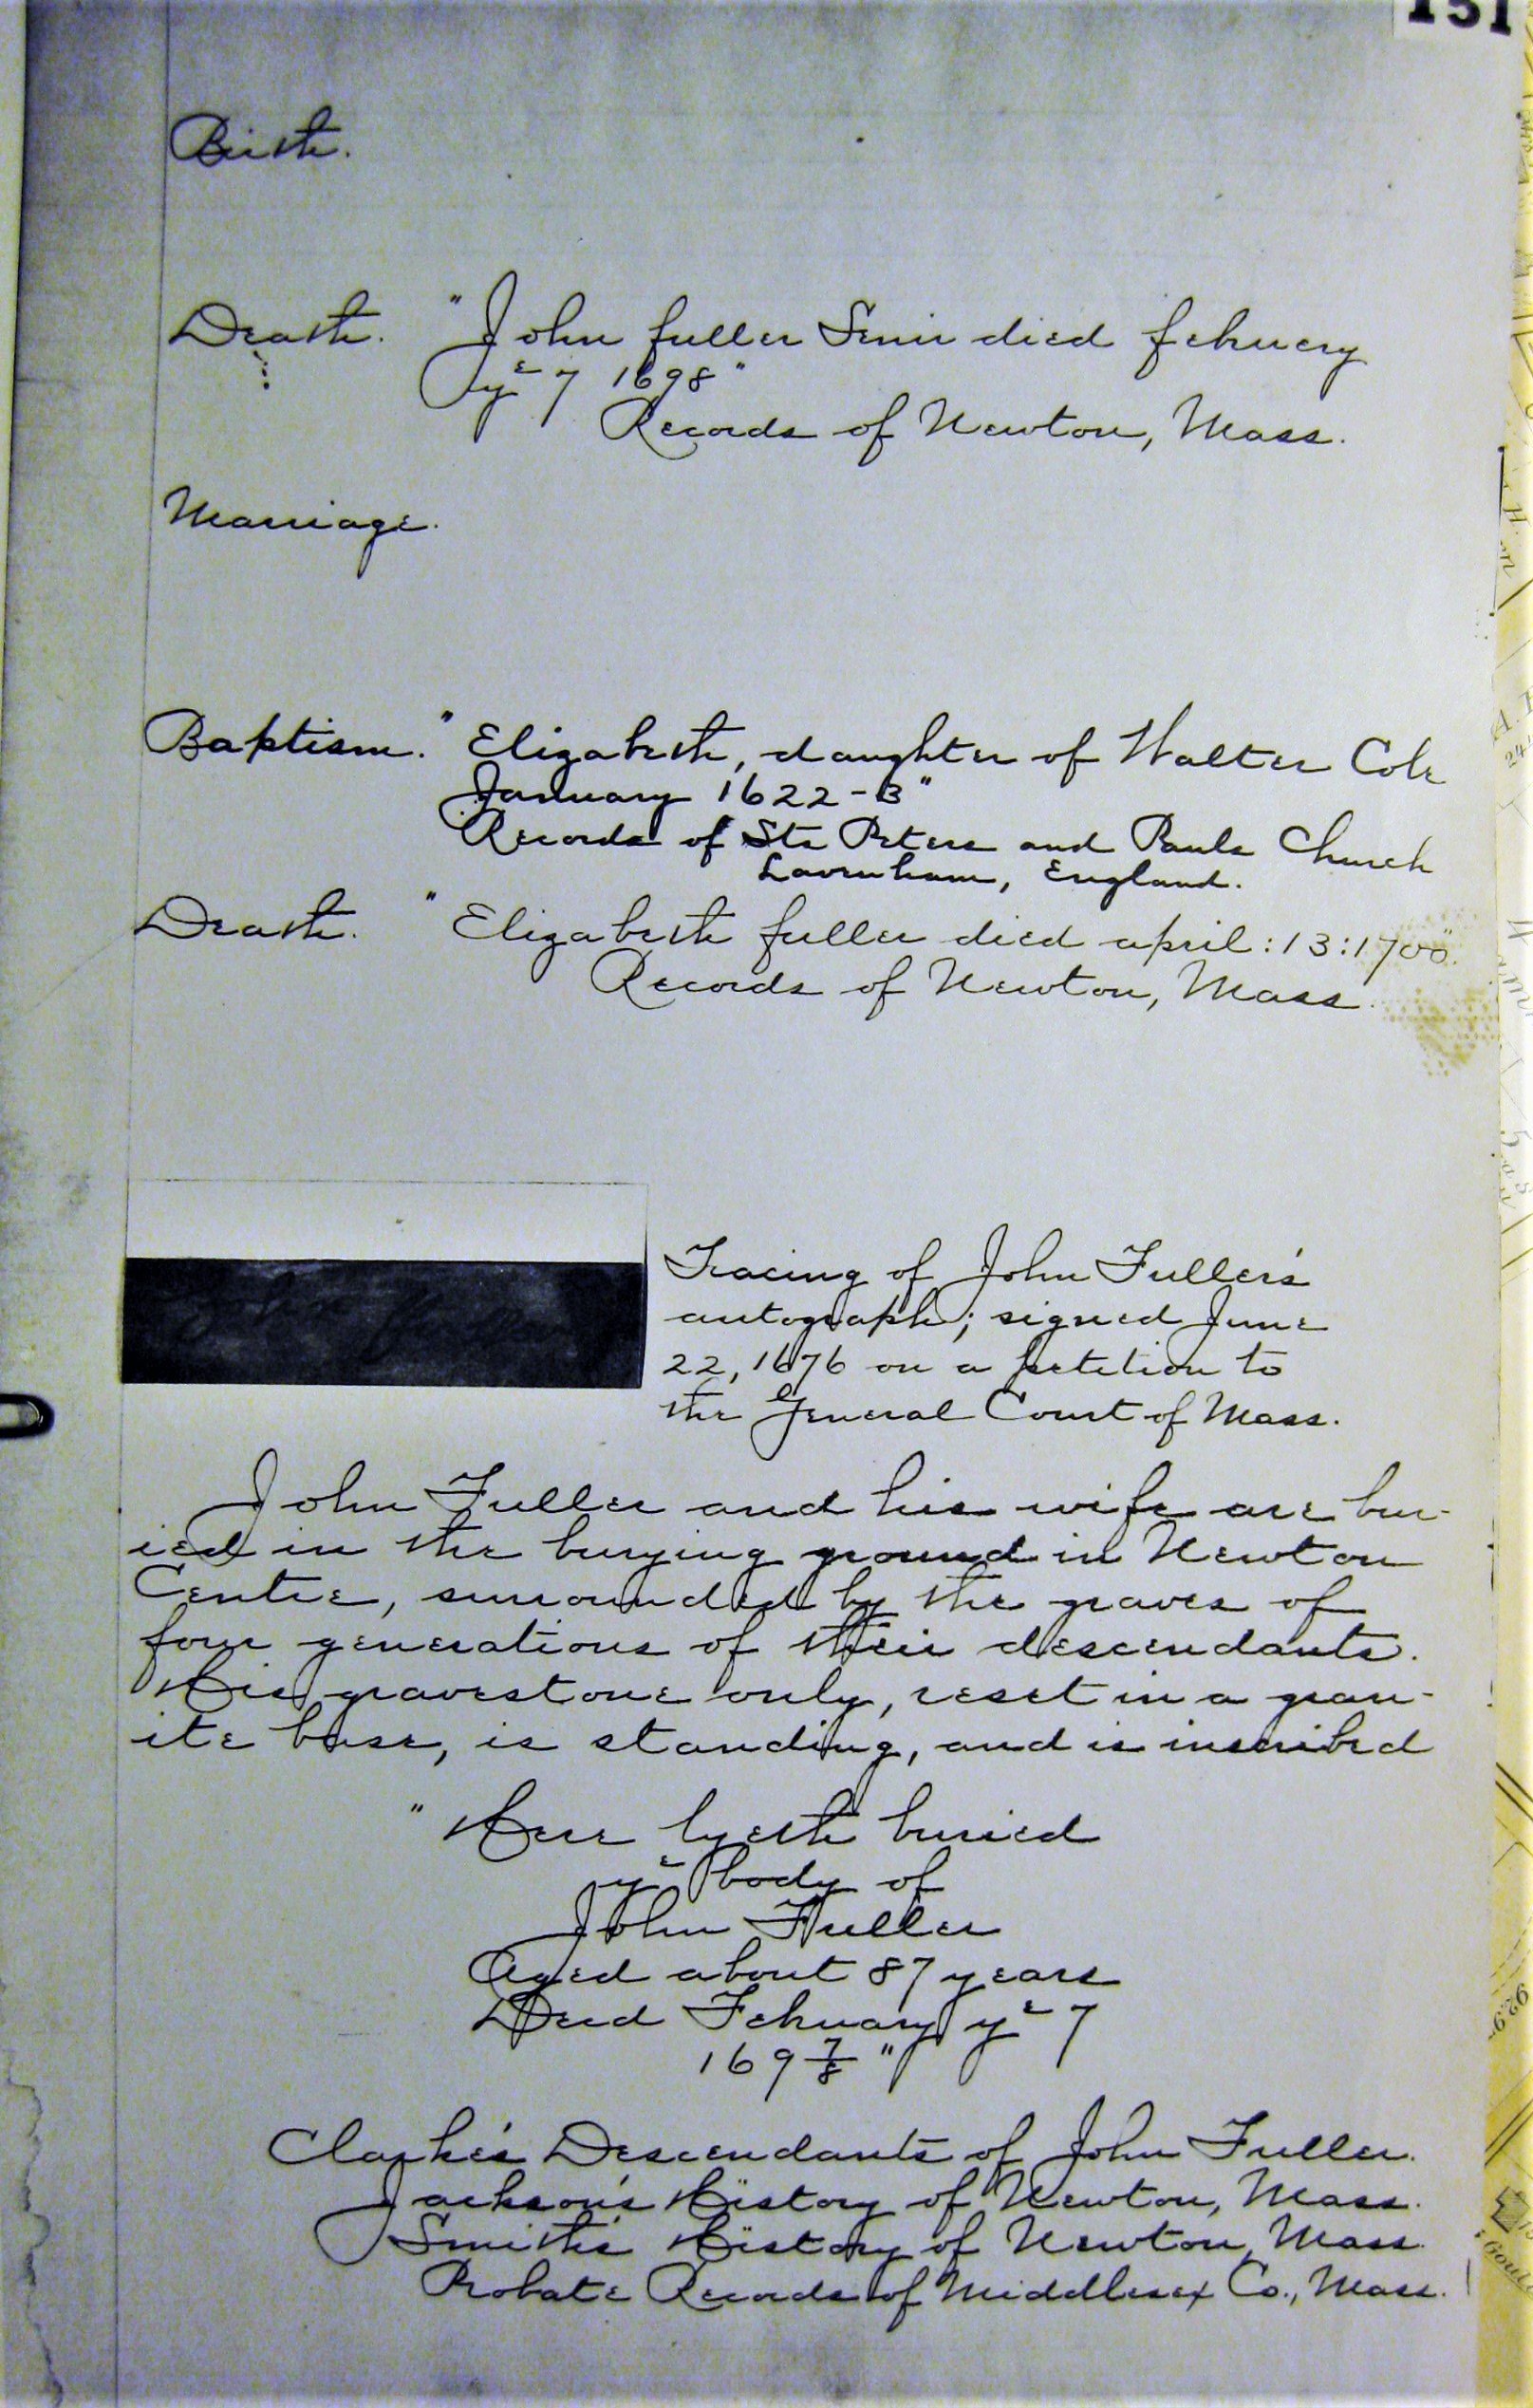 151
Birth.
Death. "John fuller Senir died february
yᵉ 7 1698"
Records of Newton, Mass.
Marriage.
Baptism. "Elizabeth, daughter of Walter Cole
January 1622-3"
Records of Sts Peters and Pauls Church
Lavenham, England.
Death. "Elizabeth fuller died april:13:1700".
Records of Newton, Mass.
Tracing of John Fuller's
autograph; signed June
22, 1676 on a petition to
the General Court of Mass.
John Fuller and his wife are bur-
ied in the burying ground in Newton
Centre, surrounded by the graves of
four generations of their descendants.
His gravestone only, reset in a gran-
ite base, is standing, and is inscribed
"Here lyeth buried
yᵉ body of
John Fuller
Aged about 87 years
Died February yᵉ 7
169 7/8"
Clarke's Descendants of John Fuller.
Jackson's History of Newton, Mass.
Smith's History of Newton, Mass.
Probate Records of Middlesex Co., Mass.